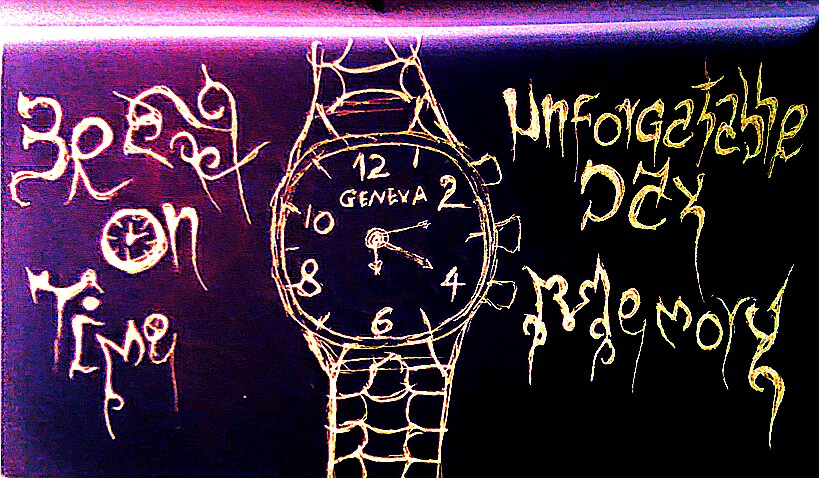 On
Time
12
GENEVA
10 2
8 4
6
Unforgatable
Day
Memory